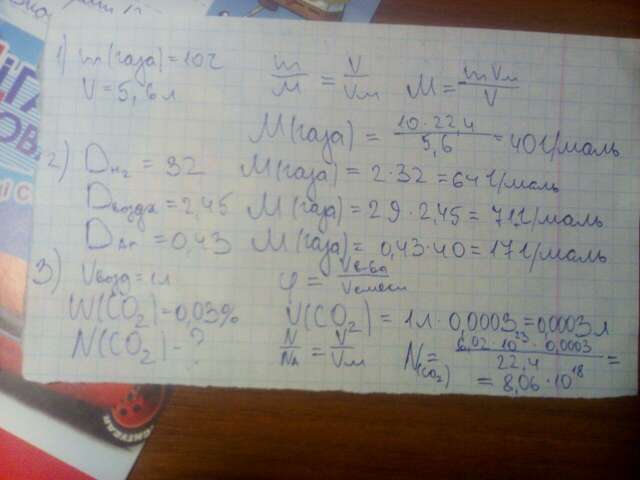 1) m(газа)=10г   m/M = V/Vм   M = mVм/V
V = 5,6 л
M(газа) = 10·22,4/5,6 = 40 г/моль
2) D H₂ = 32   M(газа) = 2·32 = 64 г/моль
D воздух = 2,45   M(газа) = 29·2,45 = 71 г/моль
D Ar = 0,43   M(газа) = 0,43·40 = 17 г/моль
3) V возд = 1 л   φ = V в-ва/V смеси
W(CO₂) = 0,03%   V(CO₂) = 1л·0,0003 = 0,0003 л
N(CO₂) - ?   N/Nₐ = V/Vм   N(CO₂) = 6,02·10²³·0,0003/22,4 =
= 8,06·10¹⁸